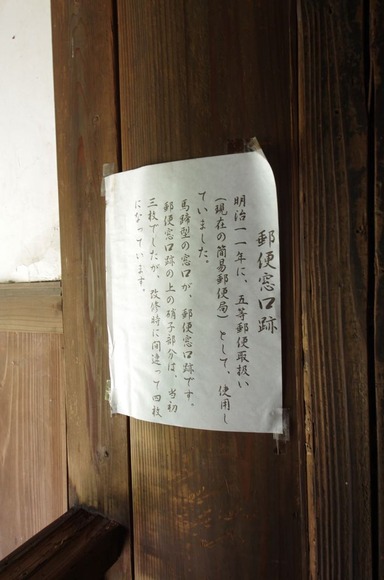 郵便窓口跡
明治一一年に、五等郵便取扱い
(現在の簡易郵便局)として、使用し
ていました。
馬蹄型の窓口が、郵便窓口跡です。
郵便窓口跡の上の硝子部分は、当初
三枚でしたが、改修時に間違って四枚
になっています。